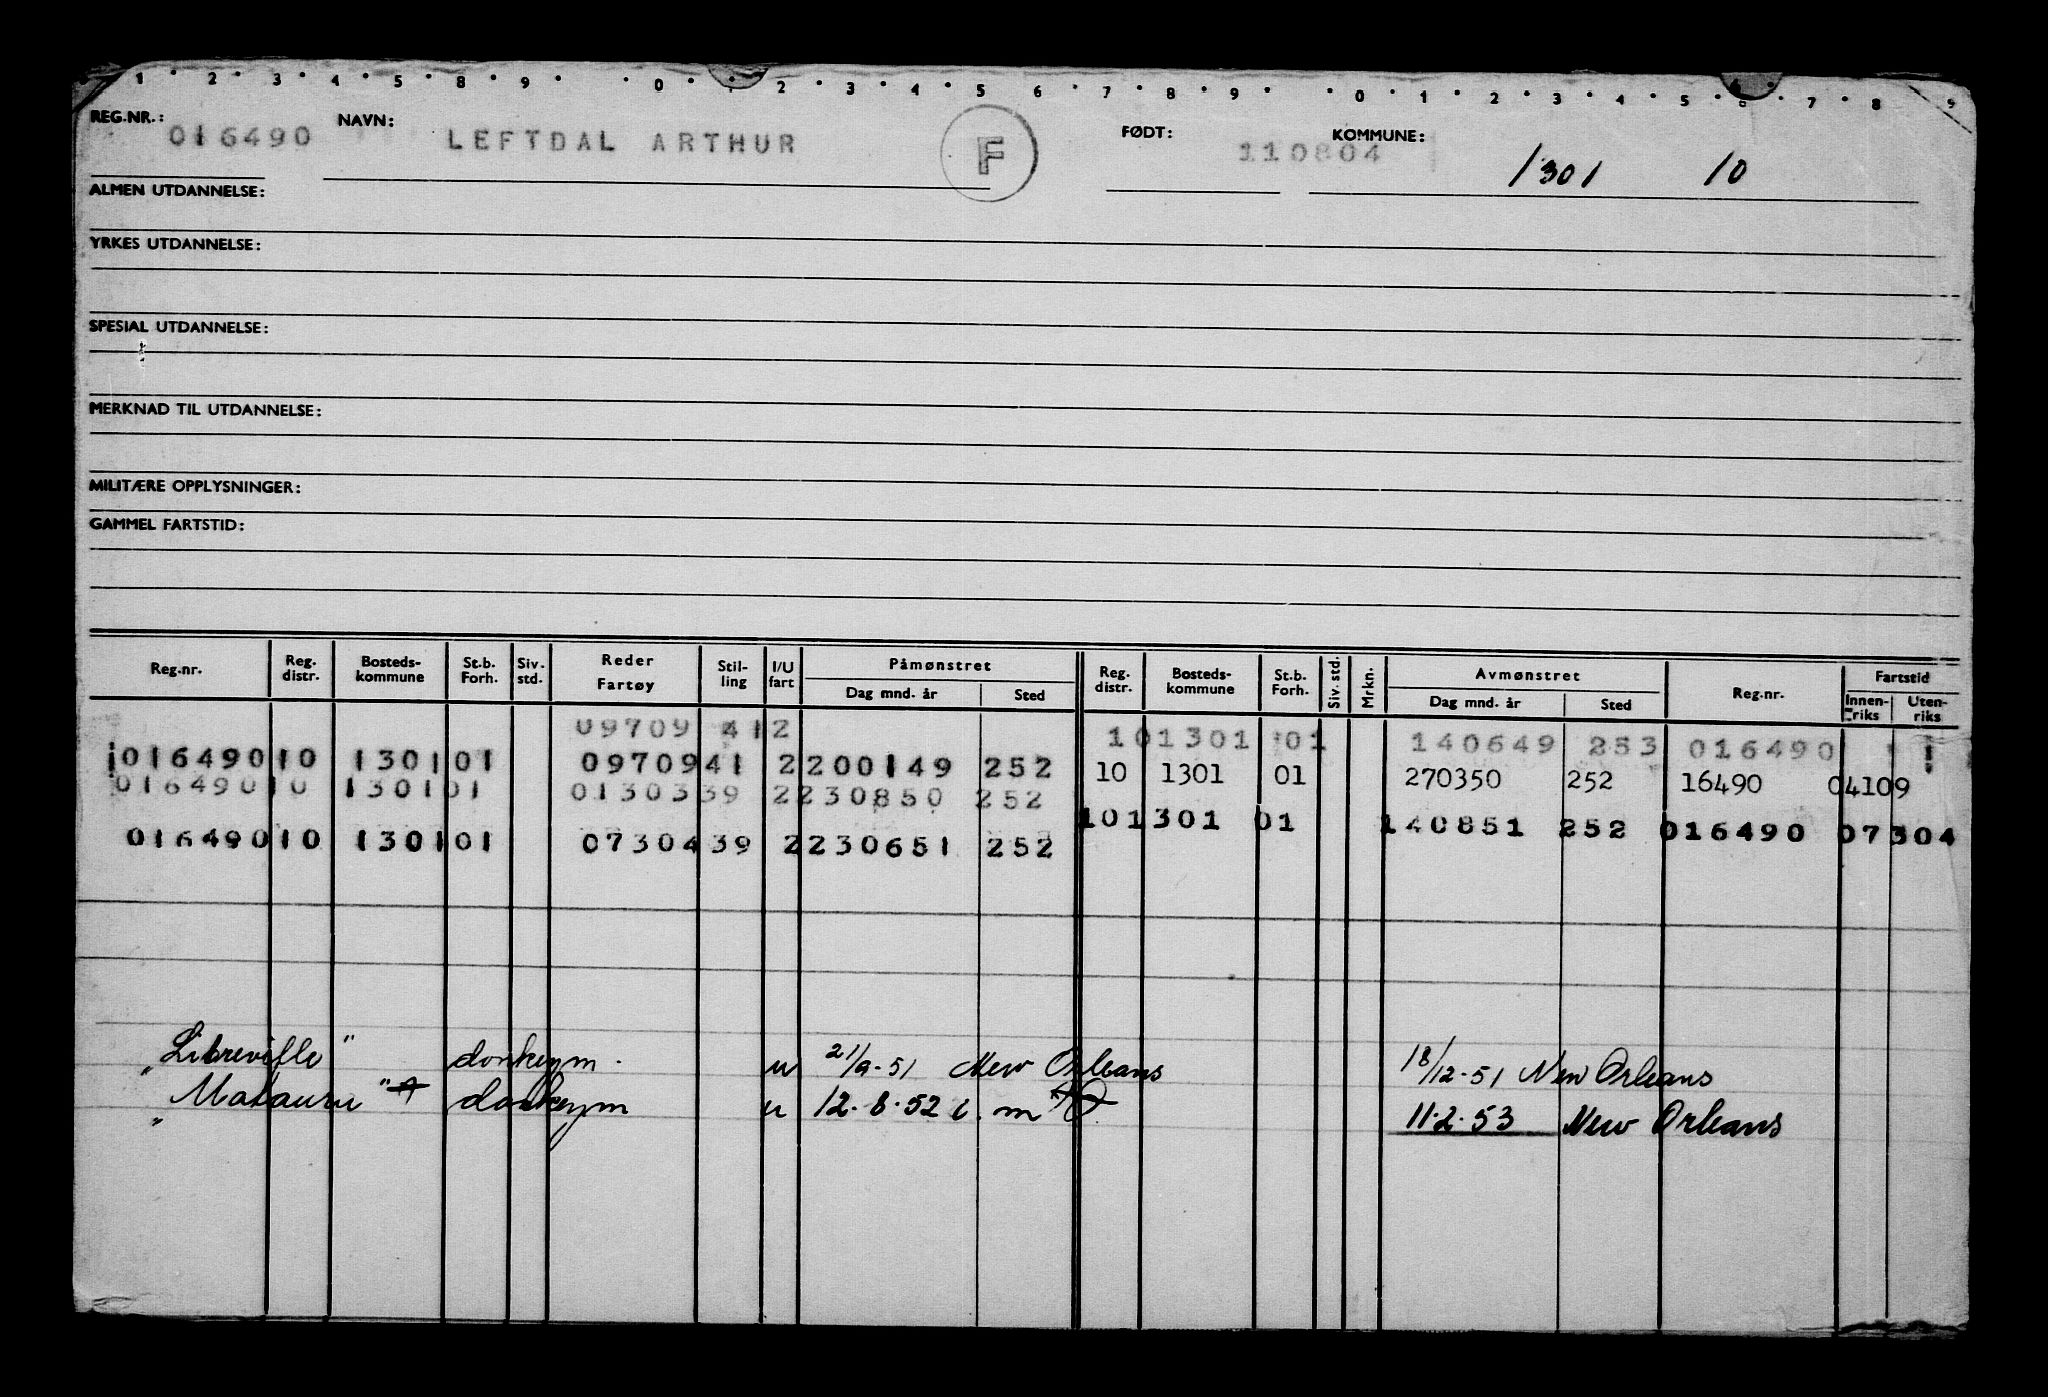 1 · 2 · 3 · 4 · 5 · 8 · 9 · · 0 · 1 · 2 · 3 · 4 · 5 · 6 · 7 · 8 · 9 · · 0 · 1 · 2 · 3 · 4 · 5 · 6 · 7 · 8 · 9
REG.NR.: 016490 NAVN: LEFTDAL ARTHUR F FØDT: 110804 KOMMUNE: 1301 10
ALMEN UTDANNELSE:
YRKES UTDANNELSE:
SPESIAL UTDANNELSE:
MERKNAD TIL UTDANNELSE:
MILITÆRE OPPLYSNINGER:
GAMMEL FARTSTID:
Reg.nr. Reg. distr. Bosteds-kommune St.b. Forh. Siv. std. Reder Fartøy Stil-ling I/U fart Påmønstret Dag mnd. år Sted Reg. distr. Bosteds-kommune St.b. Forh. Siv. std. Mrkn. Avmønstret Dag mnd. år Sted Reg.nr. Fartstid Innen-riks Uten-riks
09709 412 101301 01 140649 253 016490
016490 10 1301 01 09709 41 2 200149 252 10 1301 01 270350 252 16490 04109
016490 10 1301 01 01303 39 2 230850 252 10 1301 01 140851 252 016490 07304
016490 10 1301 01 07304 39 2 230651 252
"Libreville" donkeym. u 21/9-51 New Orleans 18/12-51 New Orleans
" donkeym u 12.8.52 11.2.53 New Orleans